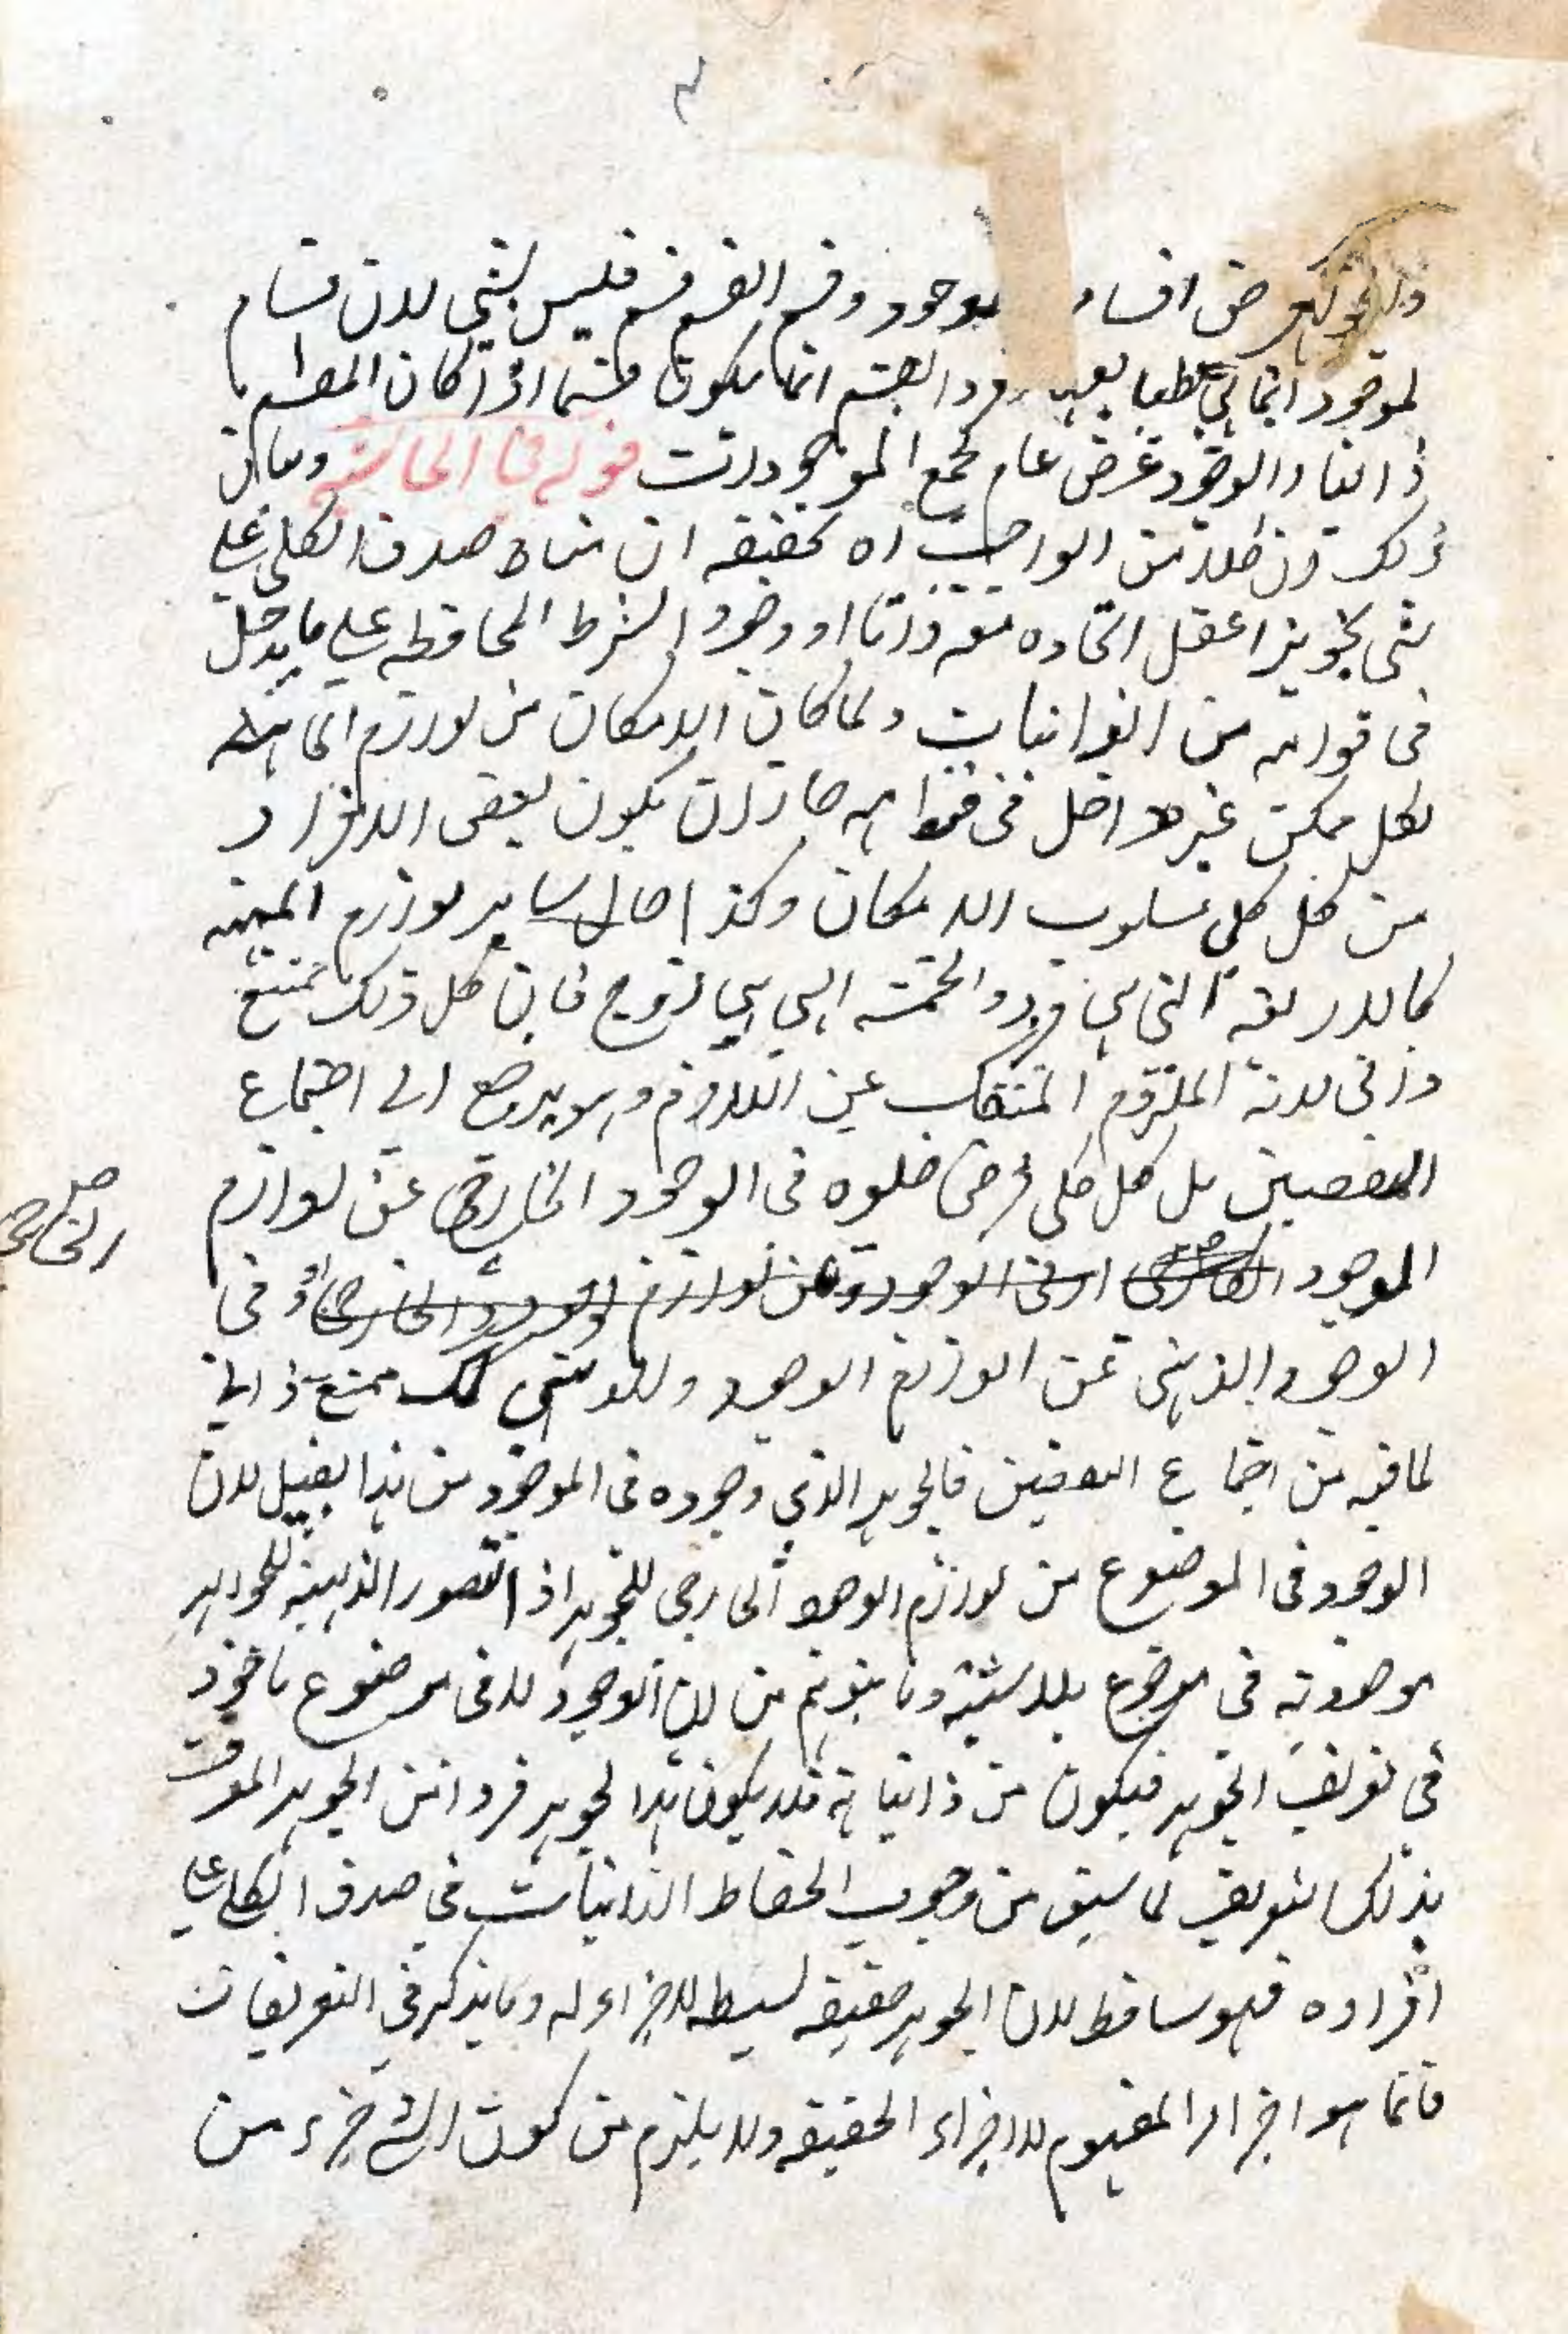 اقسام موجود وقسم القسم قسم فليس بشي لان اقسام
الموجود انما هي القسم انما يكون قسما اذا كان المقسم
ذاتيا والوجود عرض عام لجميع الموجودات قوله في الحاشية وما قال
ذلك من الواجب اه تحقيقه ان مناط صدق الكلي علي
شي تجويز العقل اتحاده معه ذاتا او وجودا بشرط المحافظه علي ما يدخل
في قوامه من الذاتيات ولما كان الامكان من لوازم الماهية
لكل ممكن غير داخل في قوامه جاز ان يكون بعض الافراد
من كل كلي مسلوب الامكان وكذا حال ساير لوازم المهية
كالاربعة التي هي فرد والخمسه التي هي زوج فان كل ذلك ممتنع
ذاتي لانه الملزوم المنفك عن اللازم وهو يرجع الي اجتماع
النقيضين بل كل كلي فرض خلوه في الوجود الخارجي عن لوازم
الموجود الخارجي او في
الوجود الذهني عن لوازم الوجود الذهني كك ممتنع ذاتي
لما فيه من اجتماع النقيضين فالجوهر الذي وجوده في الموضوع من هذا القبيل لان
الوجود في الموضوع من لوازم الوجود الخارجي للجوهر اذ الصور الذهنية للجواهر
موجودة في موضوع بلا شبهة وما يتوهم من ان الوجود لا في موضوع ماخوذ
في تعريف الجوهر فيكون من ذاتياته فلا يكون هذا الجوهر فردا من الجوهر المعرف
بذلك التعريف لما سبق من وجوب انحفاظ الذاتيات في صدق الكلي علي
افراده فهو ساقط لان الجوهر حقيقه بسيطه لا جزاء له وما يذكر في التعريفات
فانما هو اجزاء المفهوم لا اجزاء الحقيقه ولا يلزم من كون الشي جزء من
الخارجي صح